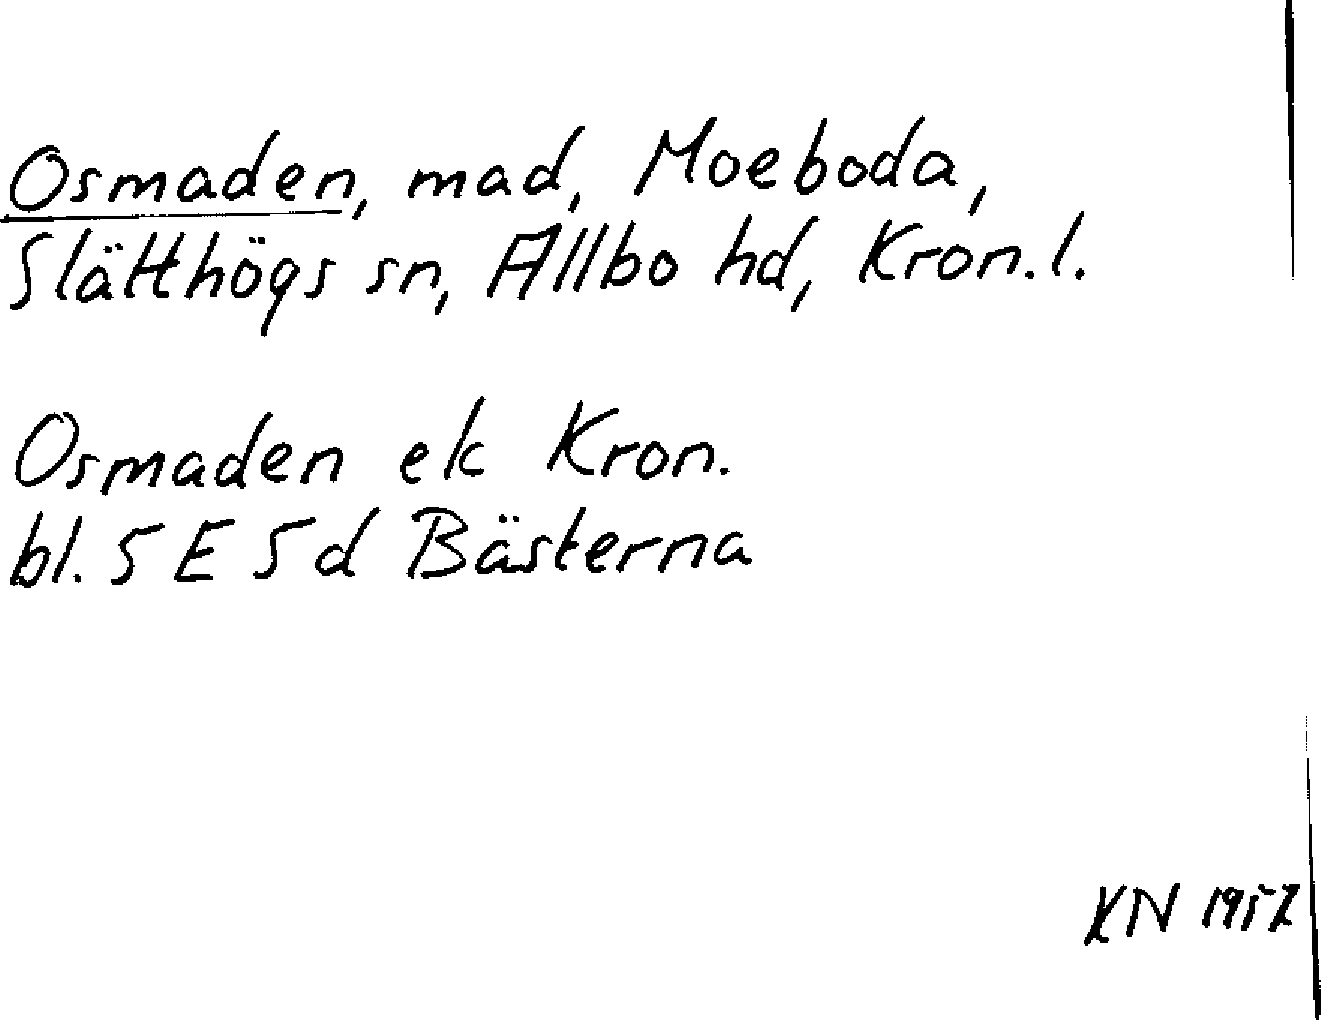 Osmaden, mad, Moeboda,
Slätthögs sn, Allbo hd, Kron.l.
Osmaden ek Kron.
bl. 5 E 5 d Bästerna
KN 1957